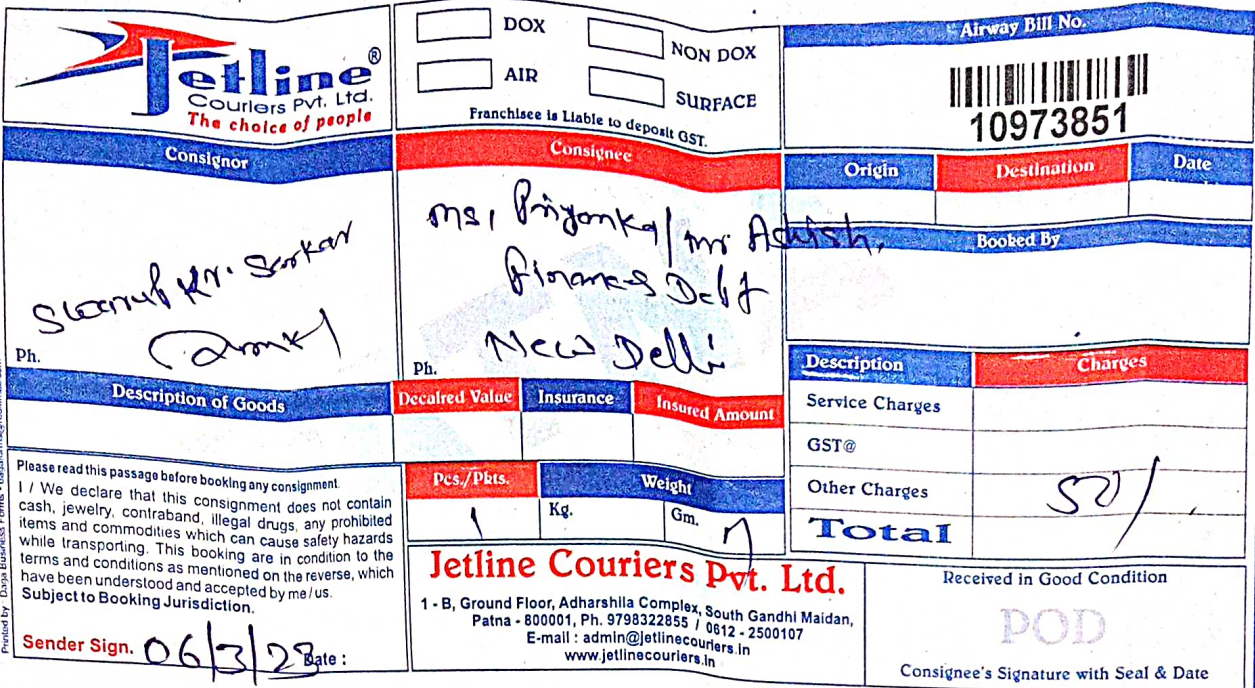 Jetline®
Couriers Pvt. Ltd.
The choice of people
DOX
NON DOX
AIR
SURFACE
Franchisee is Liable to deposit GST.
Airway Bill No.
10973851
Consignor
Kr. Sarkar
Ph.
Consignee
Ms, Priyanka/mr Ashish,
New Delhi
Ph.
Origin
Destination
Date
Booked By
Description of Goods
Decalred Value
Insurance
Insured Amount
Description
Charges
Service Charges
GST@
Other Charges
Total
50/
Please read this passage before booking any consignment.
I / We declare that this consignment does not contain
cash, jewelry, contraband, illegal drugs, any prohibited
items and commodities which can cause safety hazards
while transporting. This booking are in condition to the
terms and conditions as mentioned on the reverse, which
have been understood and accepted by me/us.
Subject to Booking Jurisdiction.
Sender Sign.
06/3/23
Date :
Pcs./Pkts.
Weight
1
Kg.
Gm.
Jetline Couriers Pvt. Ltd.
1 - B, Ground Floor, Adharshila Complex, South Gandhi Maidan,
Patna - 800001, Ph. 9798322855 / 0612 - 2500107
E-mail : admin@jetlinecouriers.in
www.jetlinecouriers.in
Received in Good Condition
POD
Consignee's Signature with Seal & Date
Printed by : Daga Business Forms